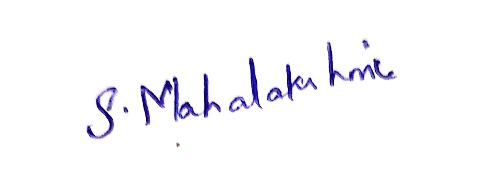 S. Mahalakshmi